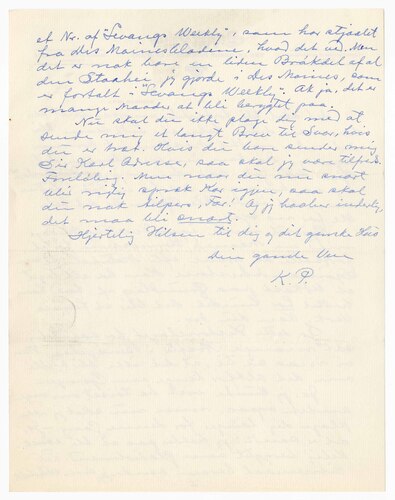 et Nr. af "Sevangs Weekly", som har stjaalet
fra Des Moines bladene, hvad det ved. Men
det er nok bare en liden Brøkdel af al
den Staahei jeg gjorde i Des Moines, som
er fortalt i "Sevangs Weekly". Ak ja, det er
mange Maader at bli berygtet paa.
Nu skal du ikke plage dig med at
sende mig et langt Brev til Svar, hvis
du er træt. Hvis du bare sender mig
Karl Adresse, saa skal jeg være tilfreds
Foreløbig. Men naar du nu snart
blir rigtig sprøk Kar igjen, saa skal
du nok tilpers, Far! Og jeg haaber inderlig,
det maa bli snart.
Hjertelig Hilsen til dig og dit ganske Hus
din gamle Ven
K. P.